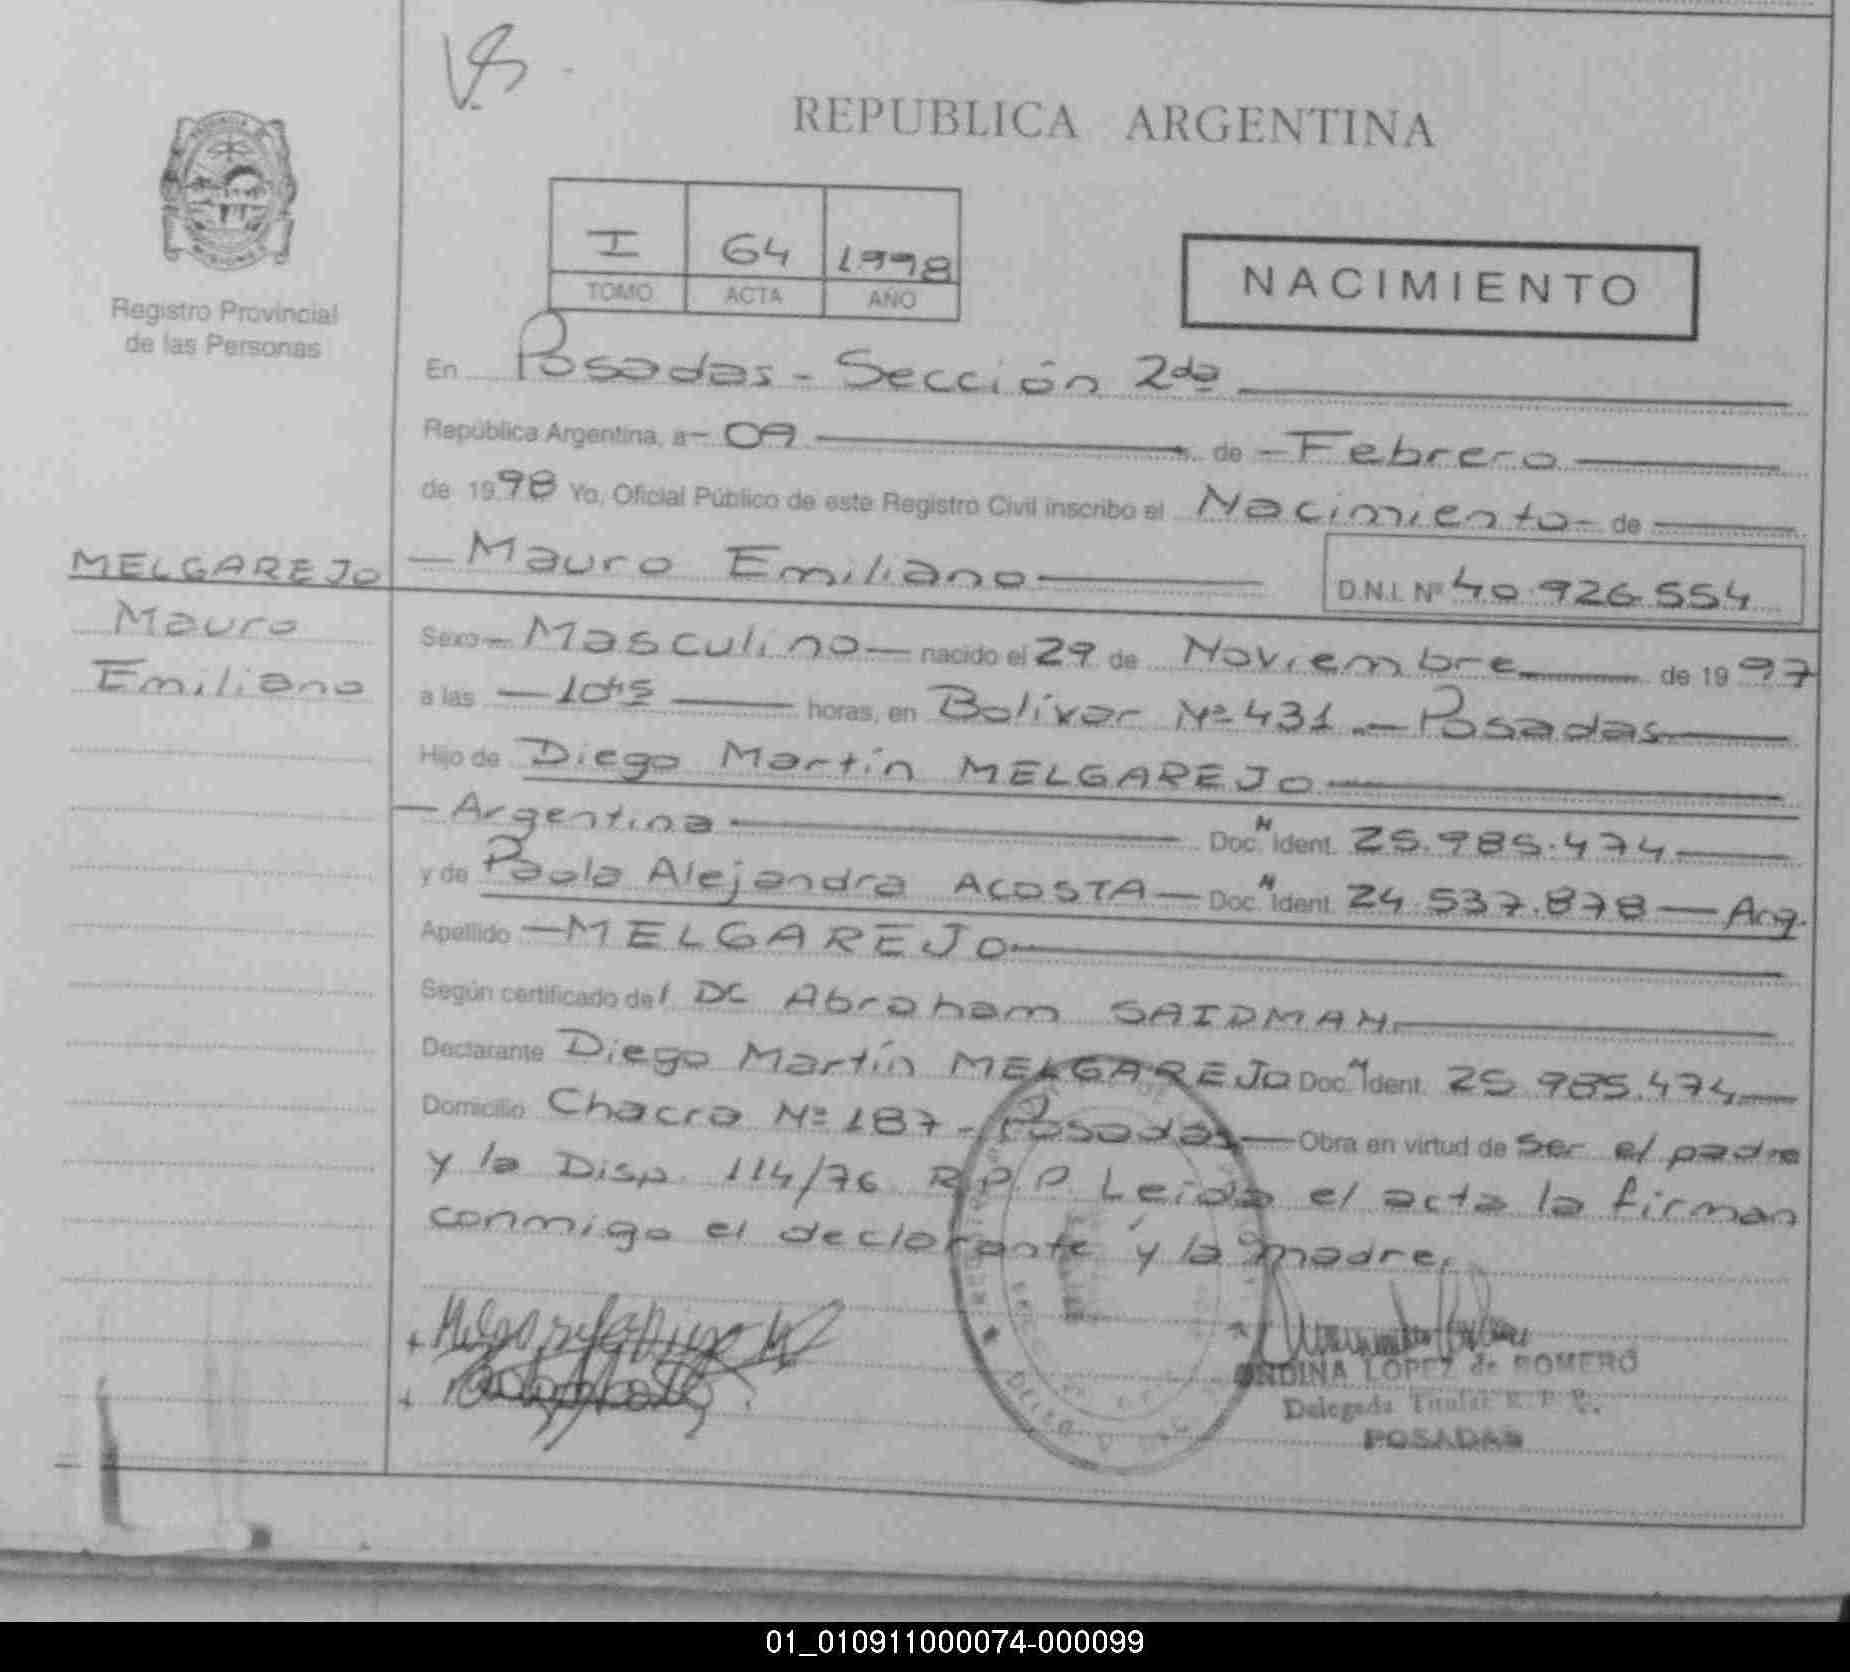 V.S.
REPUBLICA ARGENTINA
I 64 1998
TOMO ACTA AÑO
NACIMIENTO
Registro Provincial
de las Personas
En Posadas - Sección 2da
República Argentina, a - 09 de - Febrero
de 1998 Yo, Oficial Público de este Registro Civil inscribo el Nacimiento - de
MELGAREJO
Mauro
Emiliano
- Mauro Emiliano D.N.I. Nº 40.926.554
Sexo - Masculino - nacido el 29 de Noviembre de 1997
a las - 10hs horas, en Bolívar Nº 431 - Posadas
Hijo de Diego Martín MELGAREJO
- Argentina Doc. N Ident. 25.985.474
y de Paola Alejandra ACOSTA - Doc. N Ident. 24.537.878 - Arg.
Apellido - MELGAREJO
Según certificado del Dr Abraham SAIDMAN
Declarante Diego Martín MELGAREJO Doc. N Ident. 25.985.474
Domicilio Chacra Nº 187 - Posadas - Obra en virtud de ser el padre
y la Disp. 114/76 R.P.P. Leída el acta la firman
conmigo el declarante y la madre.
ONDINA LOPEZ de ROMERO
Delegada Titular R. P. P.
POSADAS
01_010911000074-000099